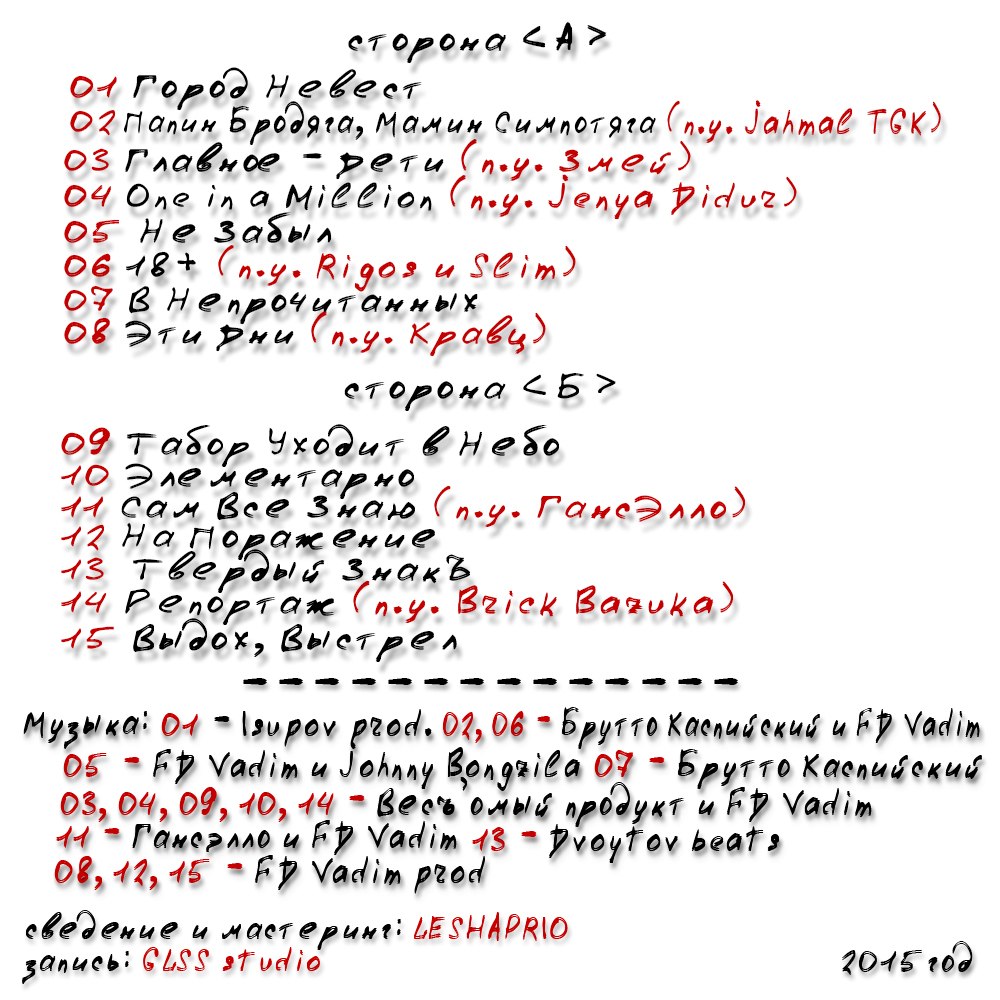 сторона <А>
01 Город Невест
02 Папин Бродяга, Мамин Симпотяга (п.у. Jahmal TGK)
03 Главное - дети (п.у. Змей)
04 One in a Million (п.у. Jenya Didur)
05 Не Забыл
06 18+ (п.у. Rigos и Slim)
07 В Непрочитанных
08 Эти Дни (п.у. Кравц)
сторона <Б>
09 Табор Уходит в Небо
10 Элементарно
11 Сам Все Знаю (п.у. ГансЭлло)
12 На Поражение
13 Твердый ЗнакЪ
14 Репортаж (п.у. Brick Bazuka)
15 Выдох, Выстрел
--------------
Музыка: 01 - Isupov prod. 02, 06 - Брутто Каспийский и FD Vadim
05 - FD Vadim и Johnny Bongzila 07 - Брутто Каспийский
03, 04, 09, 10, 14 - Весъ омый продукт и FD Vadim
11 - Гансэлло и FD Vadim 13 - Dvoytov beats
08, 12, 15 - FD Vadim prod
сведение и мастеринг: LESHAPRIO
запись: GLSS studio
2015 год